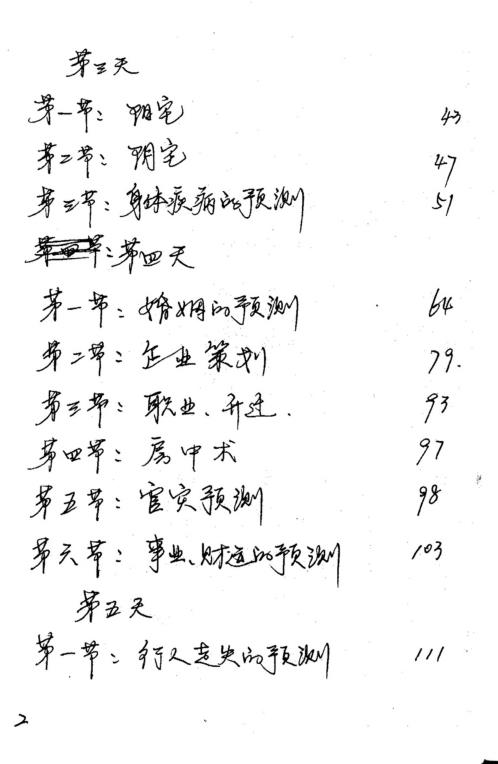 第三天
第一节：阳宅 43
第二节：阴宅 47
第三节：身体疾病的预测 51
第四天
第一节：婚姻的预测 64
第二节：企业策划 79.
第三节：职业、升迁. 93
第四节：房中术 97
第五节：官灾预测 98
第六节：事业、财运的预测 103
第五天
第一节：行人走失的预测 111
2